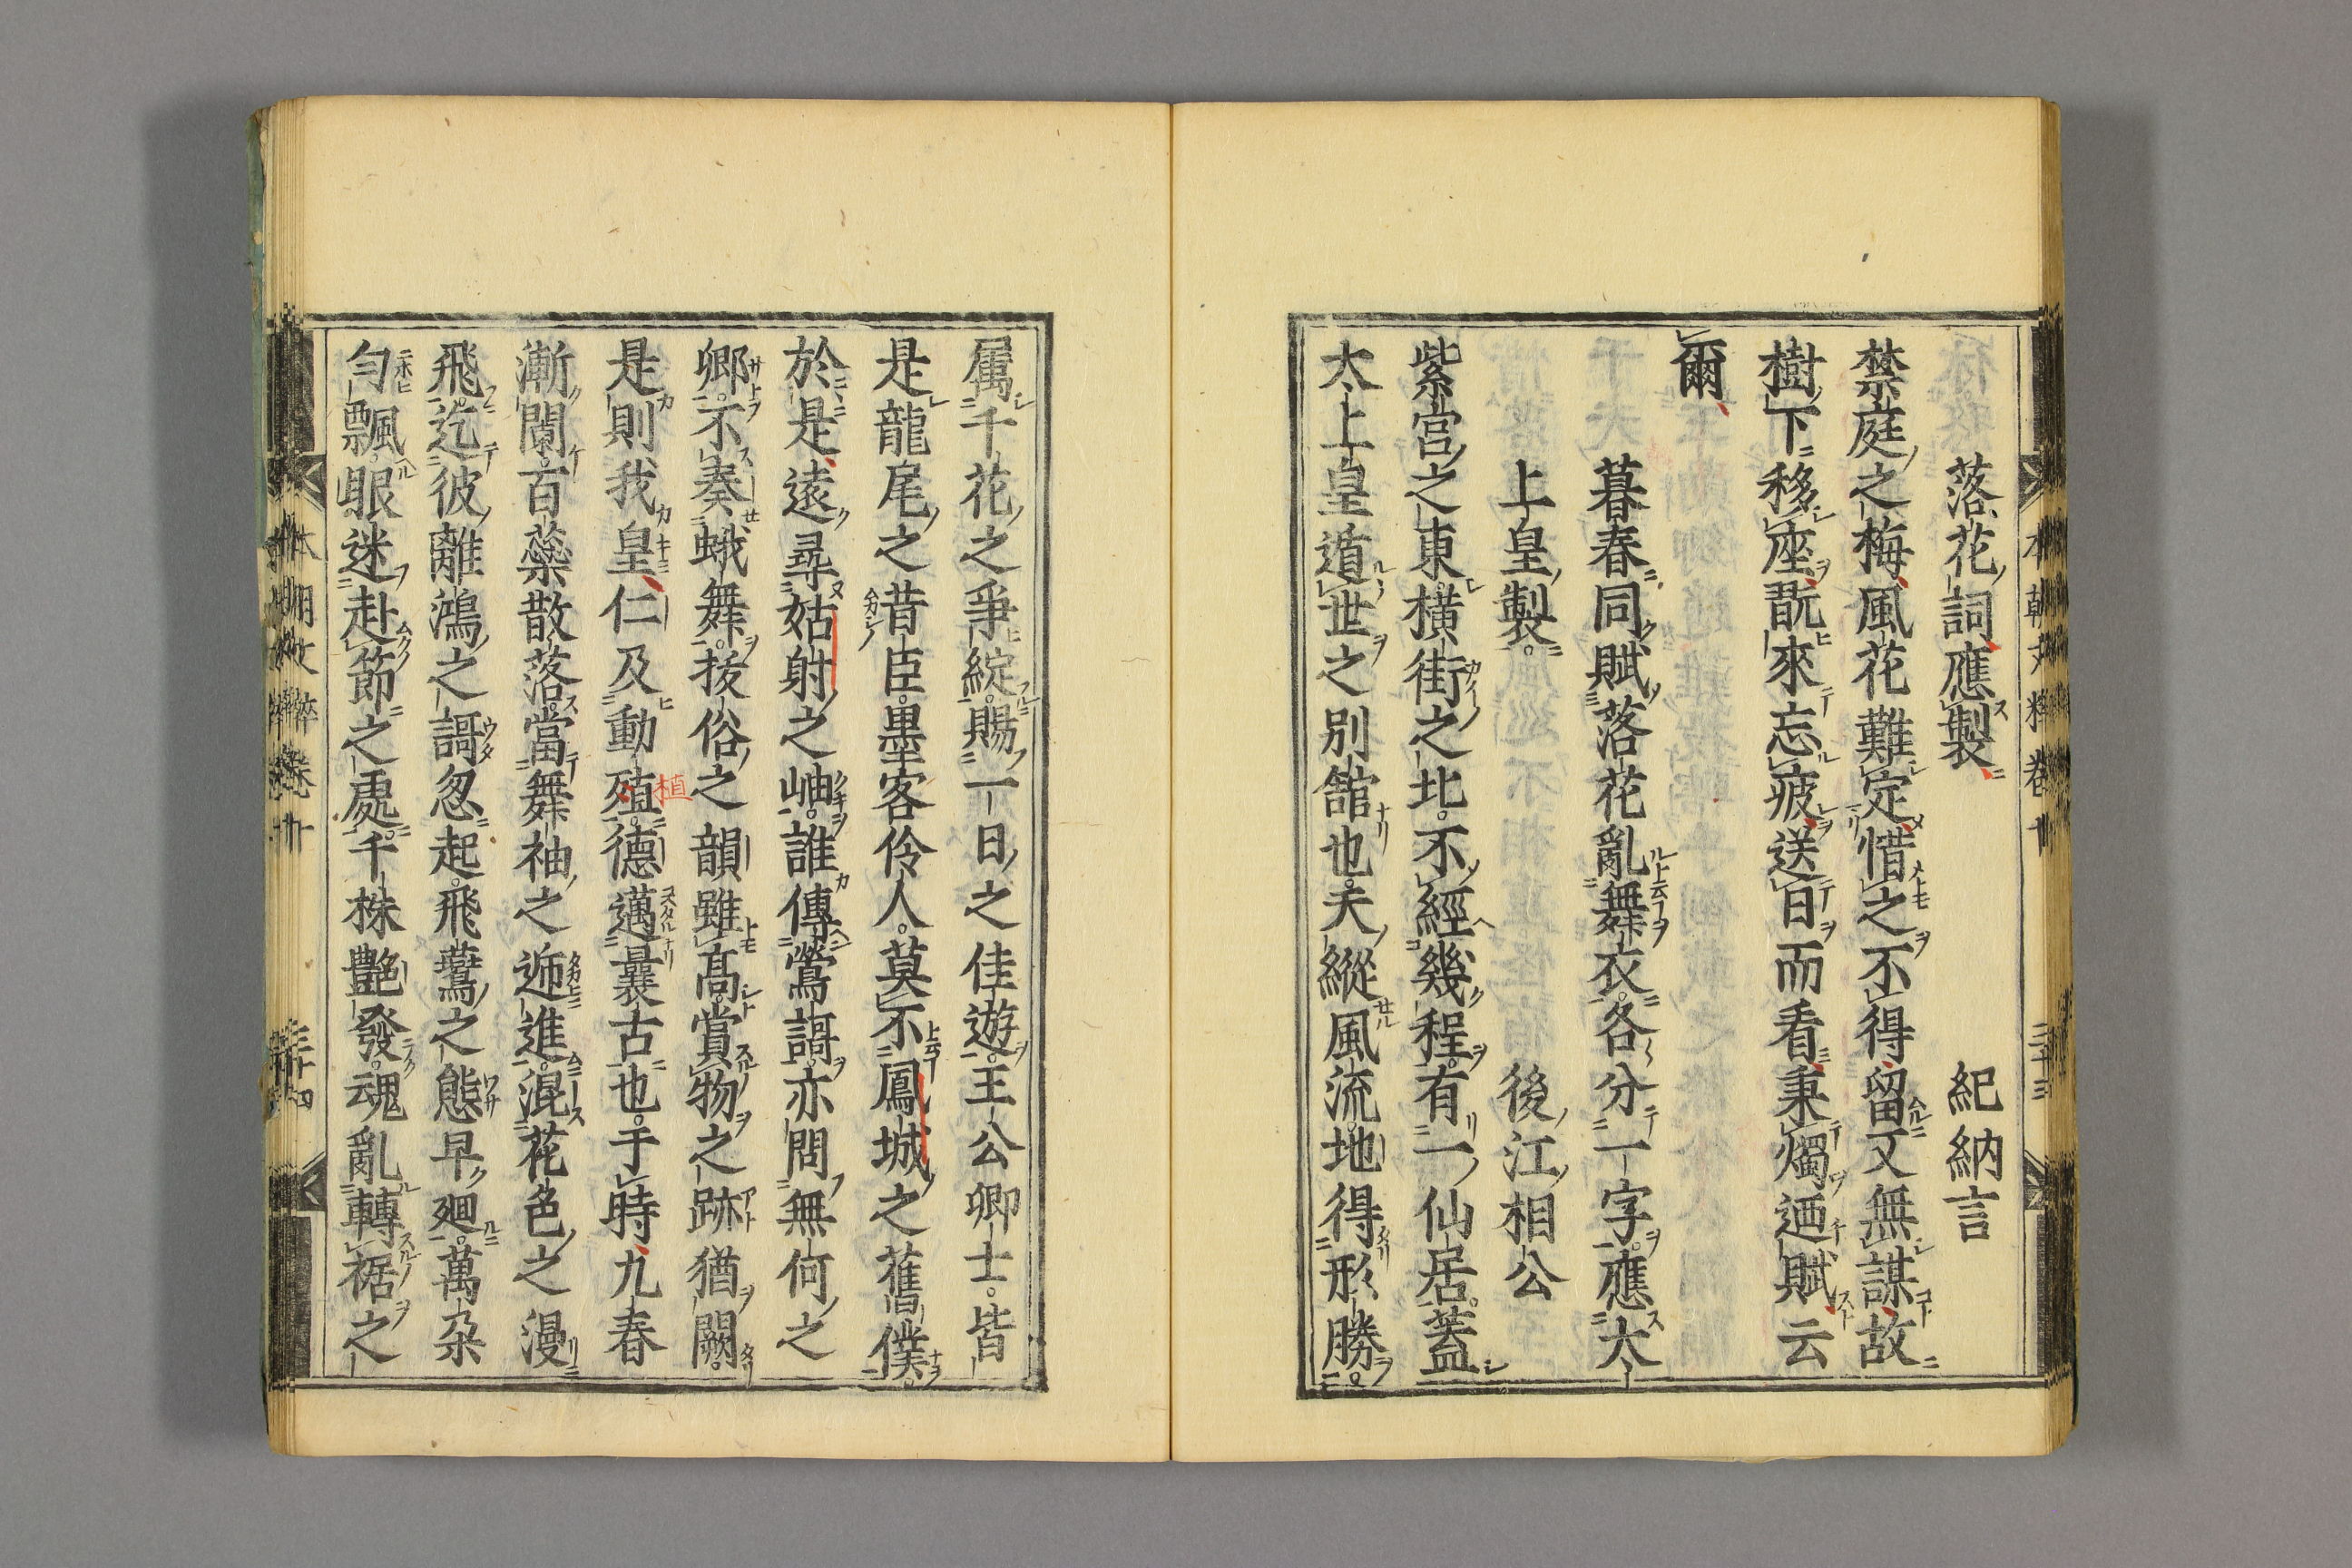 落花詞應製　紀納言
禁庭之梅風花難定惜之不得留又無謀故
樹下移座翫來忘疲送日而看秉燭迺賦云
爾
暮春同賦落花亂舞衣各分一字應太
上皇製　後江相公
紫宮之東橫街之北不經幾程有一仙居蓋
太上皇遁世之別舘也夫縱風流地得形勝
屬千花之爭綻賜一日之佳遊王公卿士皆
是龍尾之昔臣墨客伶人莫不鳳城之舊僕
於是遠尋姑射之岫誰傳鶯謌亦問無何之
鄉不奏蛾舞拔俗之韻雖高賞物之跡猶闕
是則我皇仁及動殖德邁曩古也于時九春
漸闌百蘂散落當舞袖之逓進混花色之漫
飛迄彼離鴻之謌忽起飛鷰之態早廻萬朶
匀飄眼迷赴節之處千株艷發魂亂轉裾之
植
本朝文粹卷十
三十三
本朝文粹卷十
三十四